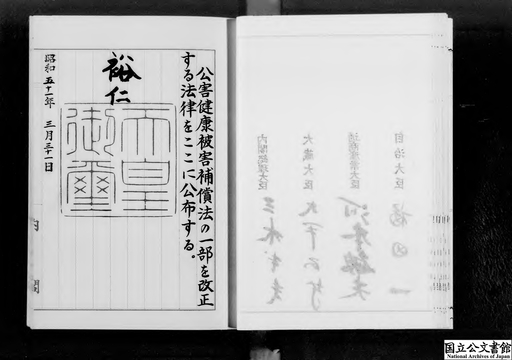 自治大臣 福田 一
通商産業大臣 河本敏夫
大蔵大臣 大平正芳
内閣総理大臣 三木武夫
公害健康被害補償法の一部を改正
する法律をここに公布する。
裕仁
天皇
御璽
昭和五十一年 三月三十一日
国立公文書館
National Archives of Japan